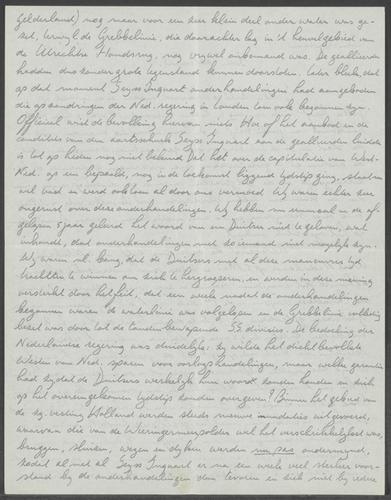 Gelderland) nog maar voor een zeer klein deel onder water was ge-
zet, terwyl de Grebbelinie, die daarachter lag in 't heuvelgebied van
de Utrechtse Heuvelrug, nog vrywel onbemand was. De geallieerden
hadden dus zonder grote tegenstand kunnen doorstoten. Later bleek, dat
op dat moment Seyss Inquart onderhandelingen had aangeboden
die op aandringen der Ned. regering in Londen ook begonnen zyn.
Officieel wist de bevolking hiervan niets. Hoe of het aanbod en de
condities van den aartsschurk Seyss Inquart aan de geallieerden luidde
is tot op heden nog niet bekend. Dat het over de capitulatie van West-
Ned. op een bepaald, nog in de toekomst liggend tydstip ging, staat
wel vast en werd ook toen al door ons vermoed. Wy waren echter zeer
ongerust over deze onderhandelingen. Wy hebben nu eenmaal in de af-
gelopen 5 jaar geleerd het woord van een Duitser niet te geloven, wat
inhoudt, dat onderhandelingen met zo iemand niet mogelyk zyn.
Wy waren nl. bang, dat de Duitsers met al deze manoeuvres tyd
trachtten te winnen om zich te hergroeperen, en werden in deze mening
versterkt door het feit, dat een week nadat de onderhandelingen
begonnen waren de waterlinie was volgelopen en de Grebbelinie volledig
bezet was door tot de tanden bewapende SS divisies. De bedoeling der
Nederlandse regering was duidelyk: zy wilde het dichtbevolkte
Westen van Ned. sparen voor oorlogshandelingen, maar welke garantie
had zy dat de Duitsers werkelyk hun woord zouden houden en zich
op het overeengekomen tydstip zouden overgeven? Binnen het gebied van
de zg. vesting Holland werden steeds nieuwe inundaties uitgevoerd,
waarvan die van de Wieringermeerpolder wel het verschrikkelykst was,
bruggen, sluizen, wegen en dyken werden nu pas ondermynd,
zodat al met al Seyss Inquart er na een week veel sterker voor-
stond by de onderhandelingen dan tevoren en zich niet by